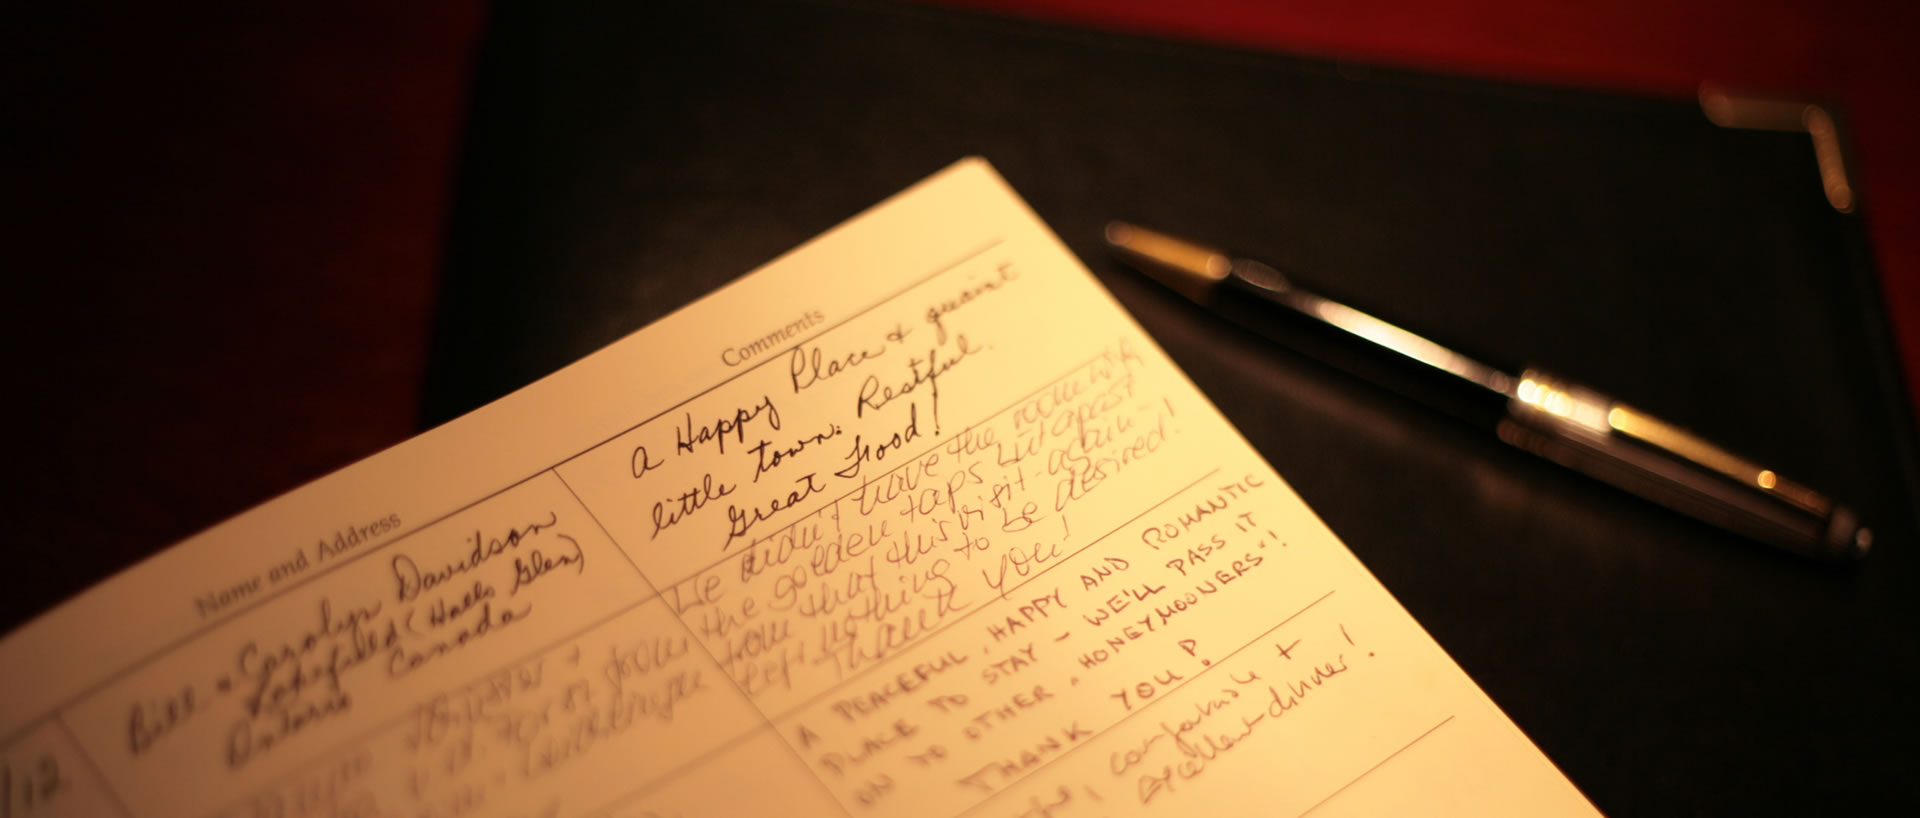 Comments
A Happy Place & quaint
little town. Restful.
Great Food!
We didn't have the room with
the golden taps but apart
from that this visit - again -
left nothing to be desired!
Thank you!
A PEACEFUL, HAPPY AND ROMANTIC
PLACE TO STAY - WE'LL PASS IT
ON TO OTHER "HONEYMOONERS"!
THANK YOU!
comfortable +
excellent dinner!
Name and Address
Bill & Carolyn Davidson
Lakefield (Halls Glen)
Ontario Canada
/12